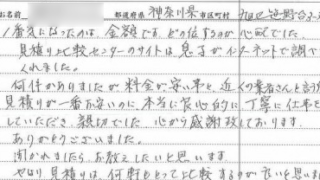 お名前 都道府県 神奈川県 市区町村
1番気になったのは、金額です。どの位するのか心配でした。
見積り比較センターのサイトは息子がインターネットで調べ
くれました。
何件かありましたが料金が安い事と、近くの業者さんと言う
見積りが一番お安いのに、本当に良心的に丁寧に仕事を
していただき、親切でした。心から感謝致しております。
ありがとうございました。
聞かれましたら、お教えしたいと思います。
やはり、見積りは、何軒もとって比較するのが良いと思いま